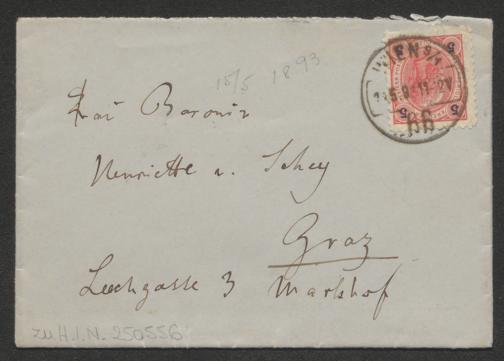 18/5 1893
WIEN 9/1
66
5 5
5 5
Frau Baronin
Henriette v. Schey
Graz
Lechgasse 3 Marshof
zu H.I.N. 250556